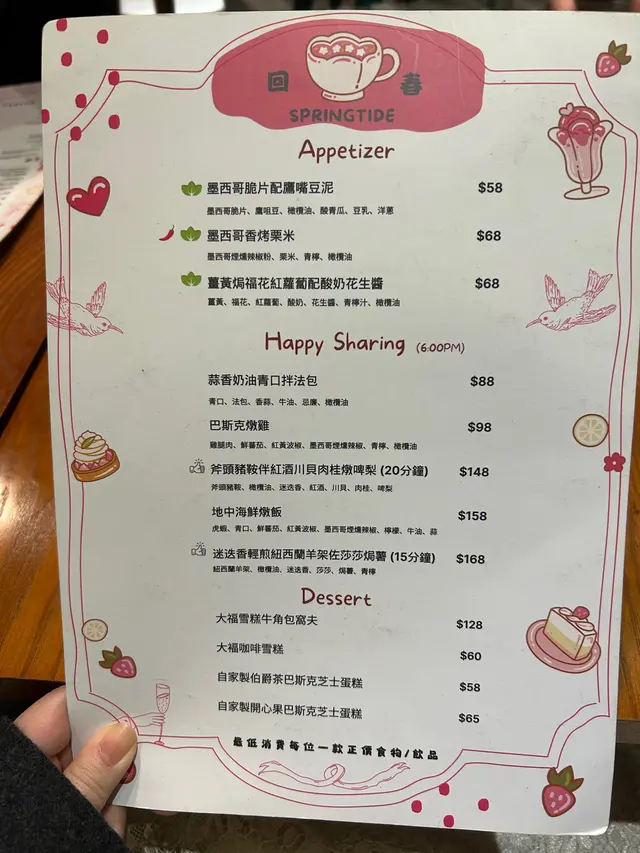 回春
SPRINGTIDE
Appetizer
墨西哥脆片配鷹嘴豆泥 $58
墨西哥脆片、鷹咀豆、橄欖油、酸青瓜、豆乳、洋蔥
墨西哥香烤栗米 $68
墨西哥煙燻辣椒粉、栗米、青檸、橄欖油
薑黃焗福花紅蘿蔔配酸奶花生醬 $68
薑黃、福花、紅蘿蔔、酸奶、花生醬、青檸汁、橄欖油
Happy Sharing (6:00PM)
蒜香奶油青口拌法包 $88
青口、法包、香蒜、牛油、忌廉、橄欖油
巴斯克燉雞 $98
雞腿肉、鮮蕃茄、紅黃波椒、墨西哥煙燻辣椒、青檸、橄欖油
斧頭豬鞍伴紅酒川貝肉桂燉啤梨 (20分鐘) $148
斧頭豬鞍、橄欖油、迷迭香、紅酒、川貝、肉桂、啤梨
地中海鮮燉飯 $158
虎蝦、青口、鮮蕃茄、紅黃波椒、墨西哥煙燻辣椒、檸檬、牛油、蒜
迷迭香輕煎紐西蘭羊架佐莎莎焗薯 (15分鐘) $168
紐西蘭羊架、橄欖油、迷迭香、莎莎、焗薯、青檸
Dessert
大福雪糕牛角包窩夫 $128
大福咖啡雪糕 $60
自家製伯爵茶巴斯克芝士蛋糕 $58
自家製開心果巴斯克芝士蛋糕 $65
最低消費每位一款正價食物/飲品